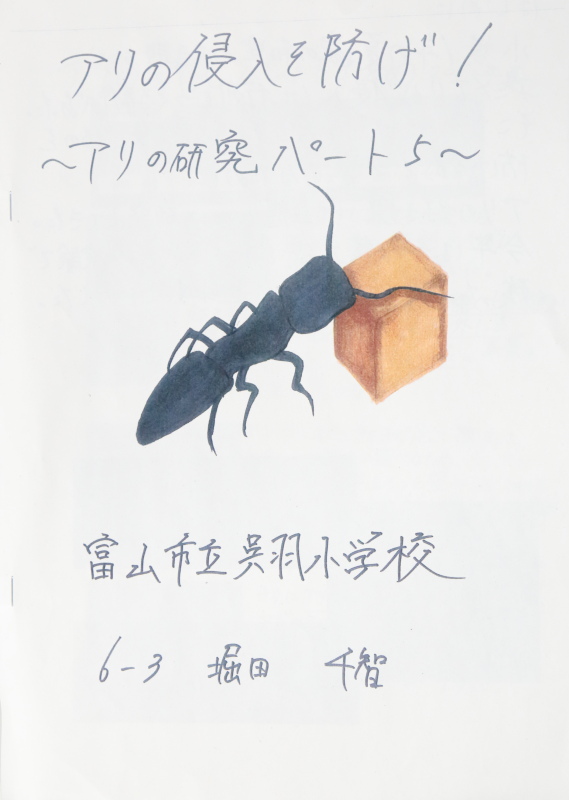 アリの侵入を防げ!
～アリの研究 パート5～
富山市立呉羽小学校
6-3 堀田 千智